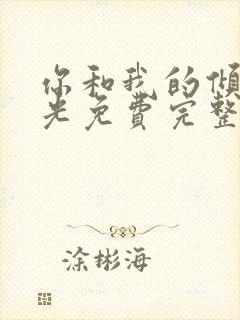 你和我的倾
光免费完整
涂彬海